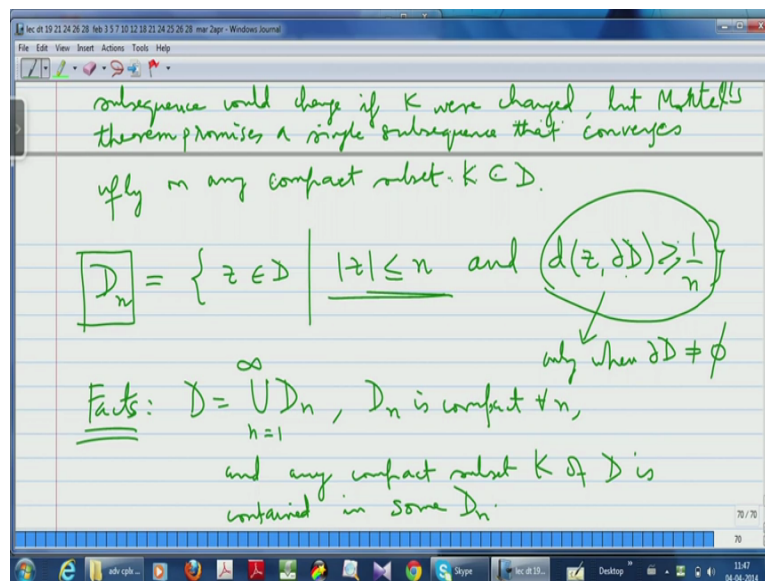 lec dt 19 21 24 26 28 feb 3 5 7 10 12 18 21 24 25 26 28 mar 2apr - Windows Journal
File Edit View Insert Actions Tools Help
subsequence would change if K were changed, but Montel's
theorem promises a single subsequence that converges
ufly on any compact subset K ⊂ D.
D_n = { z ∈ D | |z| ≤ n and d(z, ∂D) ≥ 1/n }
only when ∂D ≠ ϕ
Facts: D = ∞ ∪ n=1 D_n, D_n is compact ∀ n,
and any compact subset K of D is
contained in some D_n.
70 / 70
70
adv cplx ...
Skype
lec dt 19...
Desktop
11:47
04-04-2014